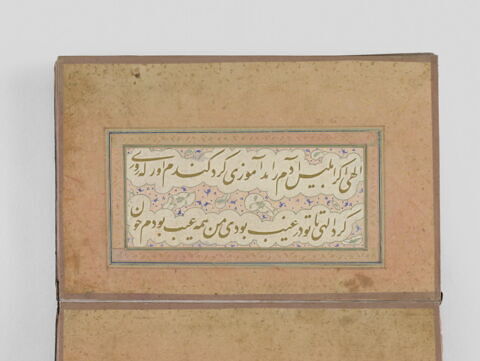 الهی اگر ابلیس آدم را بد آموزی کرد گندم او را که روزی
کرد الهی تا تو در غیب بودی من همه عیب بودم چون